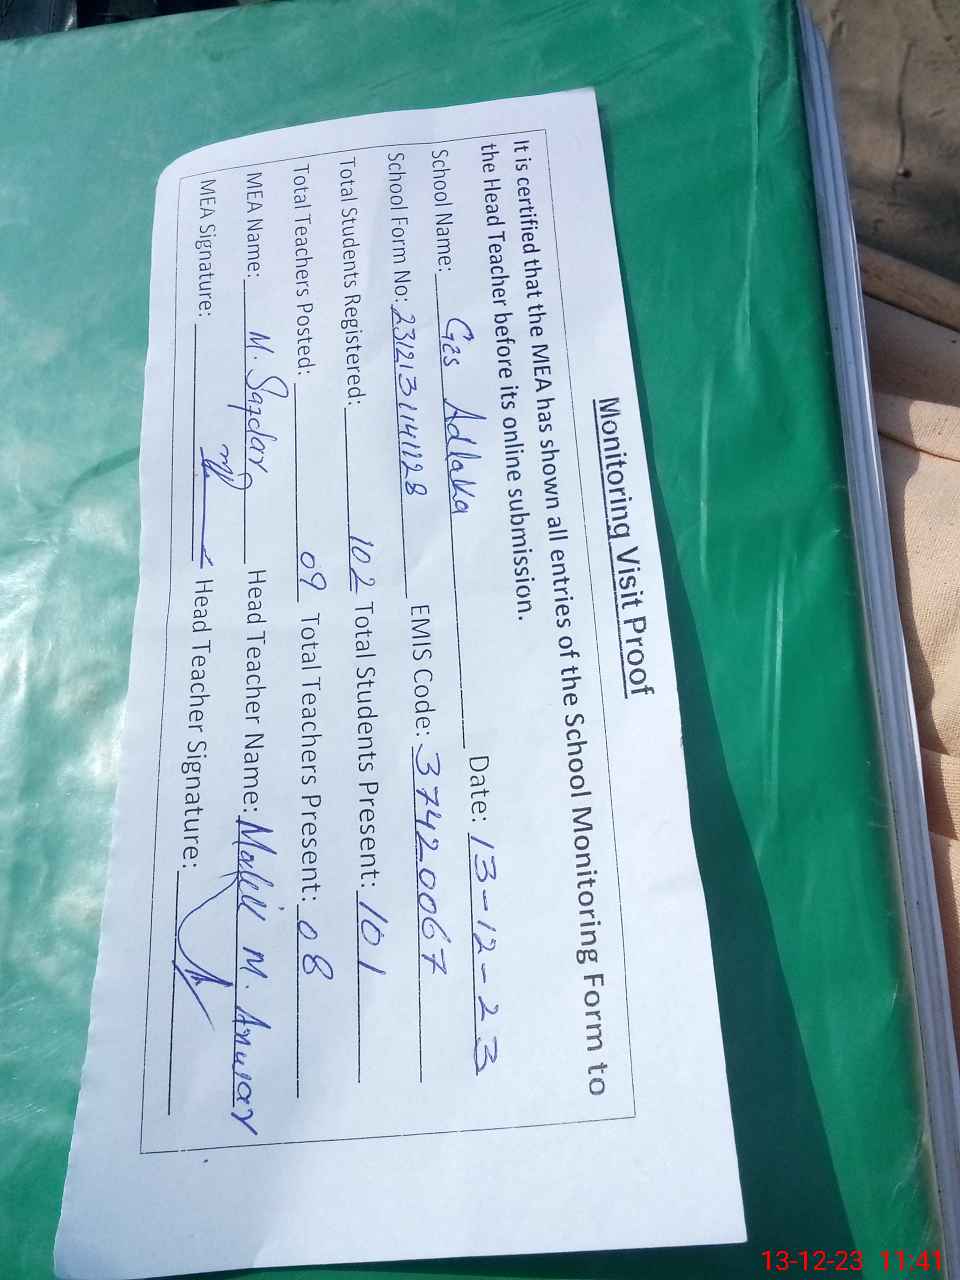 Monitoring Visit Proof
It is certified that the MEA has shown all entries of the School Monitoring Form to
the Head Teacher before its online submission.
School Name: Ges Adlaka Date: 13-12-23
School Form No: 2312131141128 EMIS Code: 37420067
Total Students Registered: 102 Total Students Present: 101
Total Teachers Posted: 09 Total Teachers Present: 08
MEA Name: M. Safdar Head Teacher Name: M. Anwar
MEA Signature: Head Teacher Signature:
13-12-23 11:41